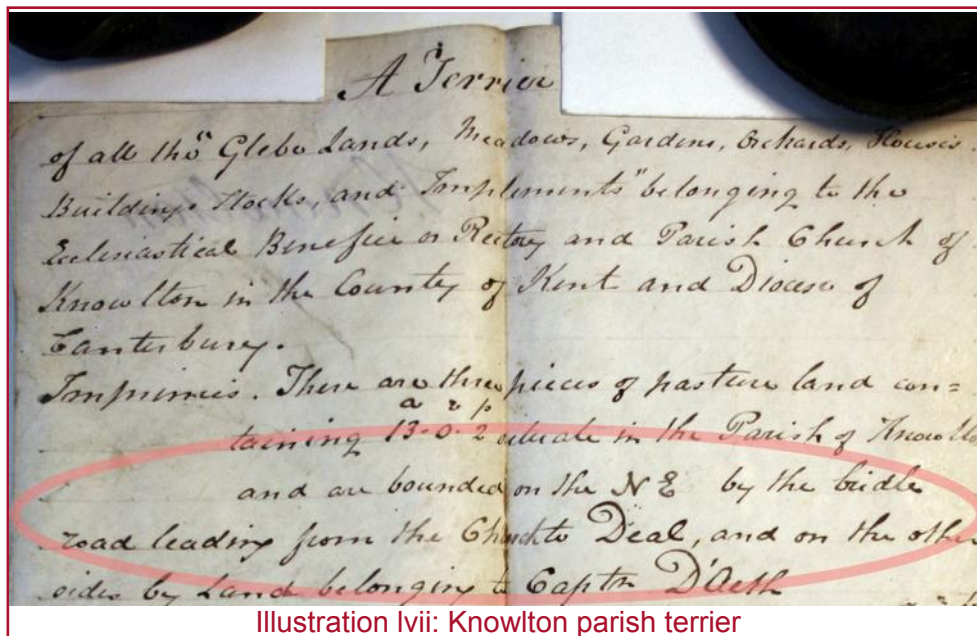 A Terrier
of all the "Glebe Lands, Meadows, Gardens, Orchards, Houses
Buildings Stocks, and Implements" belonging to the
Ecclesiastical Benefice or Rectory and Parish Church of
Knowlton in the County of Kent and Diocese of
Canterbury.
Imprimis. There are three pieces of pasture land con=
a r p
taining 13-0-2 situate in the Parish of
and are bounded on the NE by the bridle
road leading from the Church to Deal, and on the other
sides by Land belonging to Captn D'Aeth
Illustration lvii: Knowlton parish terrier